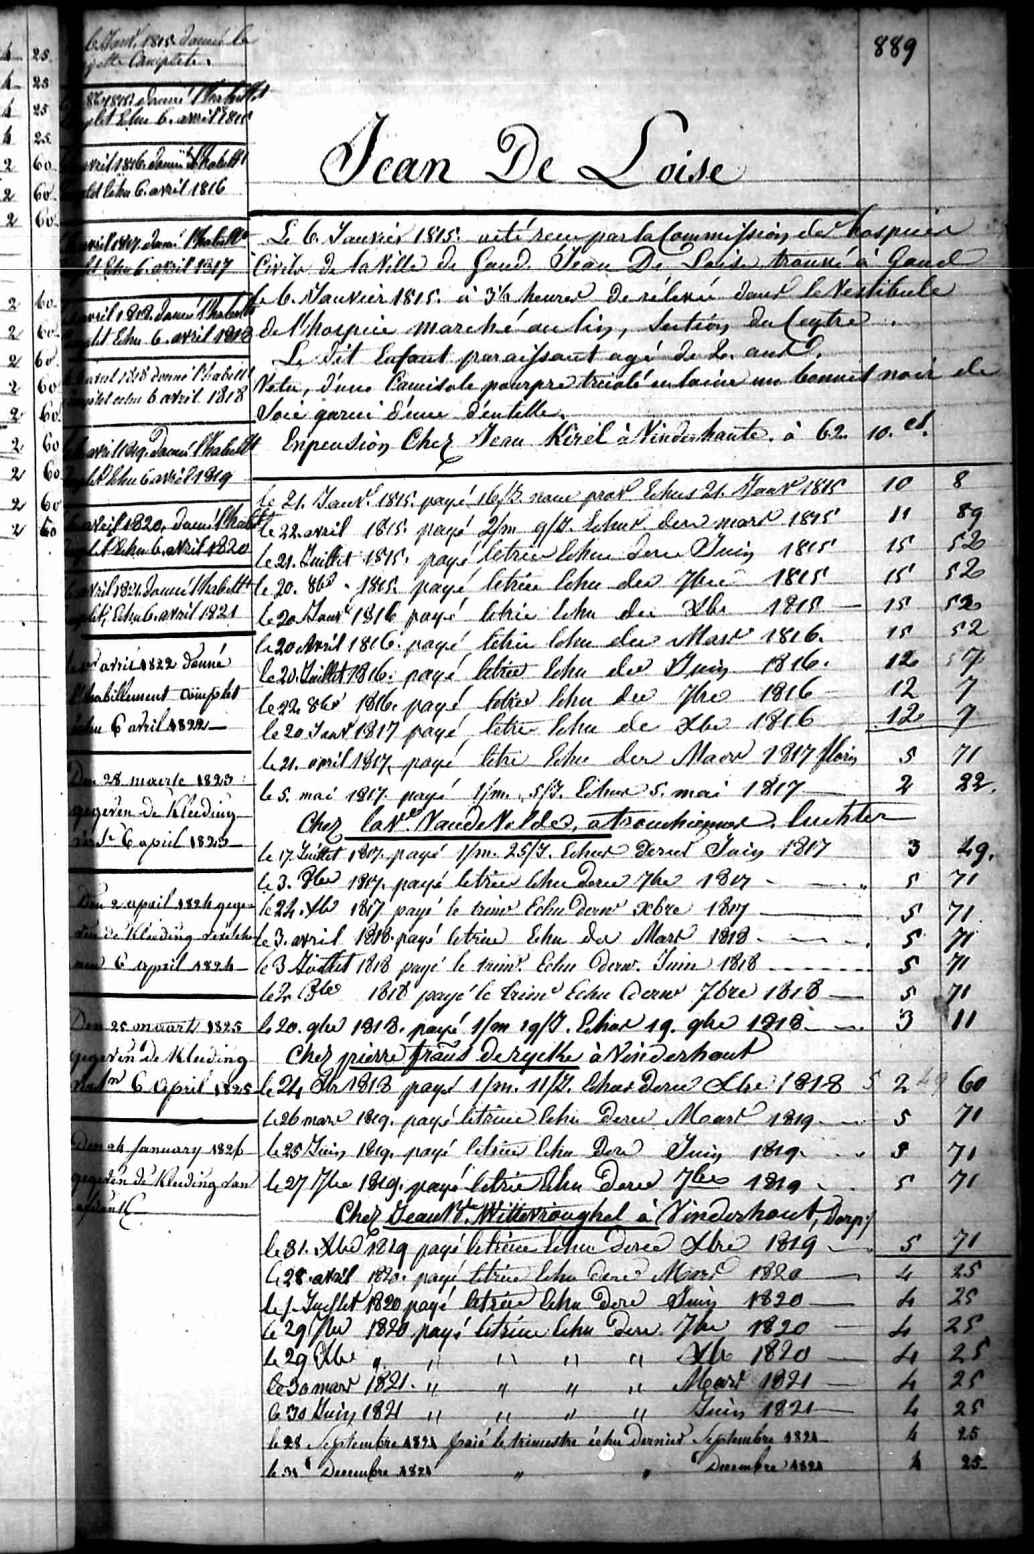 889
Jean De Loise
Le 6. Janvier 1815. a été recu par la Commission des hospices
Civils de la Ville de Gand. Jean De Loise trouvé à Gand
le 6. Janvier 1815. à 3½ heures de rélevée dans le Vestibule
de l'hospice marché au lin, Section du Centre.
Le dit Enfant paraissant agé de 2. ans.
Vetu, d'une Camisole pourpre tricoté en laine un bonnet noir de
Soie garni d'une d'entelle.
Enpension Chez Jean Kirel à Vinderhaute. à 62. 10. Ct.
le 21. Janvr. 1815. payé 16/J. nouv prov Echus 21. Janvr 1815 10 8
le 22. avril 1815 payé 2/m 9/J. Echus dern mars 1815 11 89
le 21. Juillet 1815. payé letrim Echu dern Juin 1815 15 52
le 20. 8bre 1815. payé letrim Echu der 7bre 1815 15 52
le 20 Janvr 1816 payé letrim Echu der Xbre 1815 15 52
le 20 Avril 1816. payé letrim Echu der Mars 1816. 15 52
le 20. Juillet 1816. payé letrim Echu der Juin 1816. 12 57
le 22. 8bre 1816. payé letrim Echu der 7bre 1816 12 7
le 20 Janvr 1817 payé letrim Echu de Xbre 1816 12 7
le 21. avril 1817 payé letri Echu der Mars 1817 florin 5 71
le 5. mai 1817 payé 1/m. 5/J. Echus 5. mai 1817 2 22.
Chez la Ve. Van de Velde, a tronchiennes. luchter
le 17. Juillet 1817. payé 1/m. 25/J. Echus dernr Juin 1817 3 29.
le 3. 8bre 1817. payé letrim Echu dern 7bre 1817 5 71
le 24. Xbre 1817 payé le trimr Echu dernr Xbre 1817 5 71
le 3. avril 1818. payé letrim Echu der Mars 1818 5 71
le 3 Juillet 1818 payé le trimr. Echu dernr. Juin 1818 5 71
le 2. 8bre 1818 payé le trimr Echu dernr 7bre 1818 5 71
le 20. 9bre 1818. payé 1/m 19/J. Echus 19. 9bre 1818. 3 11
Chez pierre frans derycke à Vinderhout
le 24 Xbr 1818 payé 1/m. 11/J. Echus dern Xbre 1818 2 60
le 26 mars 1819. payé letrim Echu dern Mars 1819 5 71
le 25 Juin 1819. payé letrim Echu dern Juin 1819. 5 71
le 27 7bre 1819. payé letrim Echu dern 7bre 1819 5 71
Chez Jean Bt. Wittevroughel à Vinderhout, Dorp.
le 31. Xbre 1819 payé letrim Echu dern Xbre 1819 5 71
le 28. avril 1820. payé letrim Echu dern Mars 1820 4 25
le 1. Juillet 1820 payé letrim Echu dern Juin 1820 4 25
le 29 7br 1820 payé letrim Echu dern 7br 1820 4 25
le 29 Xbre " " " " " Xbre 1820 4 25
le 30 mars 1821. " " " " Mars 1821 4 25
le 30 Juin 1821 " " " " Juin 1821 4 25
le 28 Septembre 1821 paié le trimestre échu dernier Septembre 1821 4 25
le 31 Decembre 1821 " " Decembre 1821 4 25
6 Janv. 1815 donné la
complete.
donné l'habillt
Echu 6. avril 1815
avril 1816. donné l'habillt
Echu 6. avril 1816
avril 1817. donné l'habillt
Echu 6. avril 1817
avril 1818. donné l'habillt
Echu 6. avril 1818
avril 1818 donné l'habillt
echu 6 avril. 1818
avril 1819. donné l'habillt
Echu 6 avril 1819
avril 1820. donné l'habt
Echu 6. avril 1820
avril 1821. donné l'habillt
Echu 6. avril 1821
avril 1822 donné
l'habillement complet
échu 6 avril 1822
Den 28 maerte 1823
gegeven de Kleeding
6 april 1823
Den 2 april 1824 gege
ven de Kleeding
6 april 1824
Den 25 maart 1825
gegeven de Kleeding
6 April 1825
Den 24 January 1826
gegeven de Kleeding van
4 25
4 25
4 25
4 25
2 60
2 60
2 60
2 60
2 60
2 60
2 60
2 60
2 60
2 60
2 60
2 60